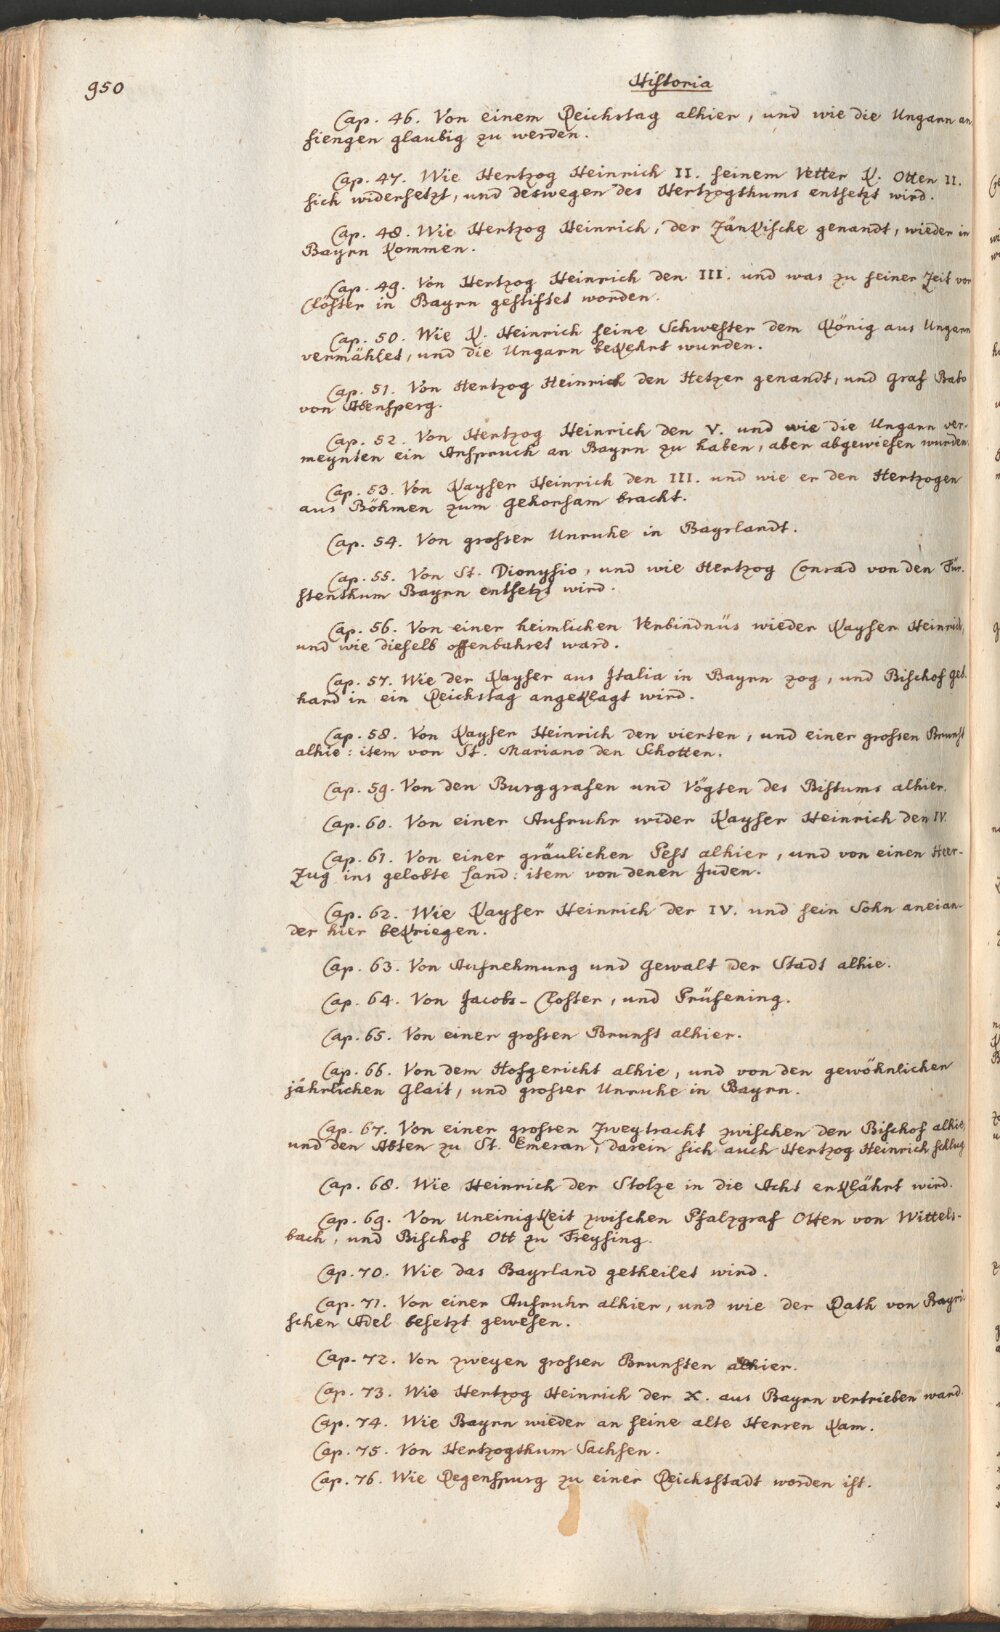 950
Historia
Cap. 46. Von einem Reichstag alhier, und wie die Ungarn an
fiengen glaubig zu werden.
Cap. 47. Wie Hertzog Heinrich II. seinem Vetter K. Otten II.
sich widersetzt, und deswegen des Hertzogthums entsetzt wird.
Cap. 48. Wie Hertzog Heinrich, der Zänkische genandt, wieder in
Bayrn kommen.
Cap. 49. Von Hertzog Heinrich den III. und was zu seiner Zeit vor
Clöster in Bayrn gestiftet worden.
Cap. 50. Wie K. Heinrich seine Schwester dem König aus Ungarn
vermählet, und die Ungarn bekehrt wurden.
Cap. 51. Von Hertzog Heinrich den Hetzer genandt, und Graf Babo
von Abensperg.
Cap. 52. Von Hertzog Heinrich den V. und wie die Ungarn ver-
meynten ein Anspruch an Bayrn zu haben, aber abgewiesen wurden.
Cap. 53. Von Kayser Heinrich den III. und wie er den Hertzogen
aus Böhmen zum Gehorsam bracht.
Cap. 54. Von grosser Unruhe in Bayrlandt.
Cap. 55. Von St. Dionysio, und wie Hertzog Conrad von den Für-
stenthum Bayrn entsetzt wird.
Cap. 56. Von einer heimlichen Verbindnüs wieder Kayser Heinrich,
und wie dieselb offenbahret ward.
Cap. 57. Wie der Kayser aus Italia in Bayrn zog, und Bischof Geb-
hard in ein Reichstag angeklagt wird.
Cap. 58. Von Kayser Heinrich den vierten, und einer grossen Brunst
alhie: item von St. Mariano den Schotten.
Cap. 59. Von den Burggrafen und Vögten des Bistums alhier.
Cap. 60. Von einer Aufruhr wider Kayser Heinrich den IV.
Cap. 61. Von einer gräulichen Pest alhier, und von einen Heer-
Zug ins gelobte Land: item von denen Juden.
Cap. 62. Wie Kayser Heinrich der IV. und sein Sohn aneian-
der hier bekriegen.
Cap. 63. Von Aufnehmung und Gewalt der Stadt alhie.
Cap. 64. Von Jacobs-Closter, und Prüfening.
Cap. 65. Von einer grossen Brunst alhier.
Cap. 66. Von dem Hofgericht alhie, und von den gewöhnlichen
jährlichen Glait, und grosser Unruhe in Bayrn.
Cap. 67. Von einer grossen Zweytracht zwischen den Bischof alhie,
und den Abten zu St. Emeran, darein sich auch Hertzog Heinrich schlug
Cap. 68. Wie Heinrich der Stolze in die Acht erklährt wird.
Cap. 69. Von Uneinigkeit zwischen Pfalzgraf Otten von Wittels-
bach, und Bischof Ott zu Freysing.
Cap. 70. Wie das Bayrland getheilet wird.
Cap. 71. Von einer Aufruhr alhier, und wie der Rath von Bayri-
schen Adel besetzt gewesen.
Cap. 72. Von zweyen grossen Brunsten alhier.
Cap. 73. Wie Hertzog Heinrich der X. aus Bayrn vertrieben ward.
Cap. 74. Wie Bayrn wieder an seine alte Herren kam.
Cap. 75. Von Hertzogthum Sachsen.
Cap. 76. Wie Regenspurg zu einer Reichsstadt worden ist.